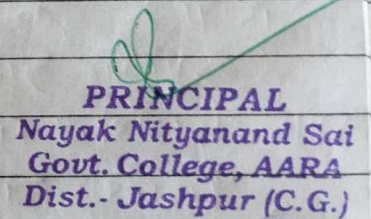 PRINCIPAL
Nayak Nityanand Sai
Govt. College, AARA
Dist.- Jashpur (C.G.)